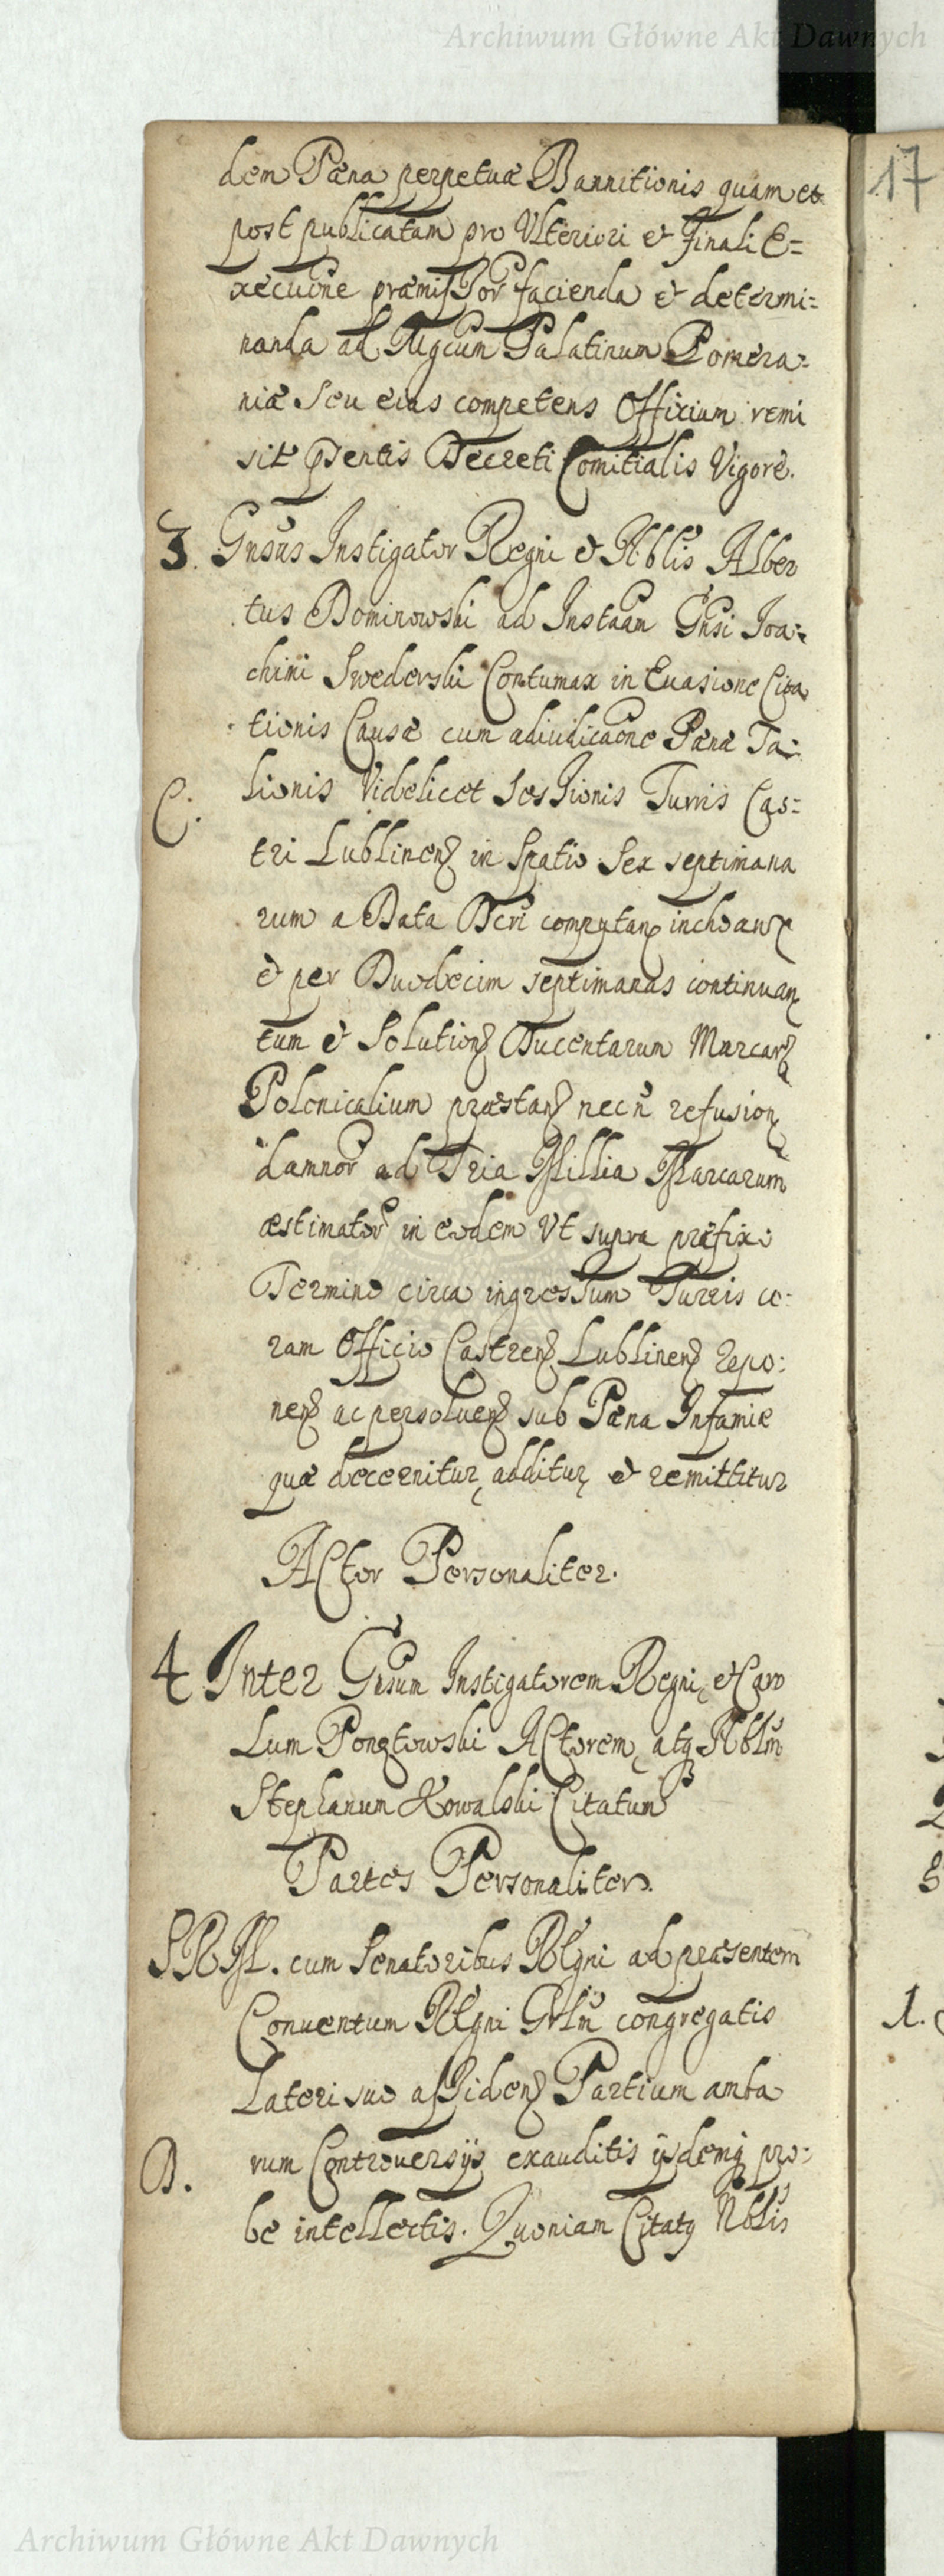 Archiwum Główne Akt Dawnych
17
dem Pæna perpetuæ Bannitionis quam et
post publicatam pro Ulteriori et Finali E=
xecuoñe præmissor facienda et determi=
nanda ad Mgcum Palatinum Pomera=
niæ seu eius competens Officium remi
sit pñtis Decreti Comitialis Vigore.
3. Gnsus Instigator Regni et Nblis Alber
tus Dominowski ad Instaan Gnsi Joa=
chimi Swederski Contumax in Euasione Cita
tionis Causæ cum adiudicaone Pænæ Ta=
C. lionis Videlicet Sessionis Turris Cas=
tri Lublinen in Spatio Sex septimana
rum a Data Dcri computan inchoan
et per Duodecim septimanas continuan
tum et Solution Ducentarum Marcar
Polonicalium præstan necñ refusion
damnor ad Tria Millia Marcarum
æstimator in eodem Ut supra præfixo
Termino circa ingressum Turris co=
ram Officio Castren Lublinen repo=
nen ac persoluen sub Pæna Infamiæ
quæ decernitur, additur, et remittitur
Actor Personaliter.
4 Inter Gnsum Instigatorem Regni, et Caro
lum Pongtowski Actorem, atq Nblm
Stephanum Kowalski Citatum
Partes Personaliter.
SRM. cum Senatoribus Regni ad præsentem
Conuentum Regni Grlm congregatis
Lateri suo assiden Partium amba
B. rum Controuersijs exauditis ijsdemq pro=
be intellectis. Quoniam Citatq Nblis
1.
Archiwum Główne Akt Dawnych